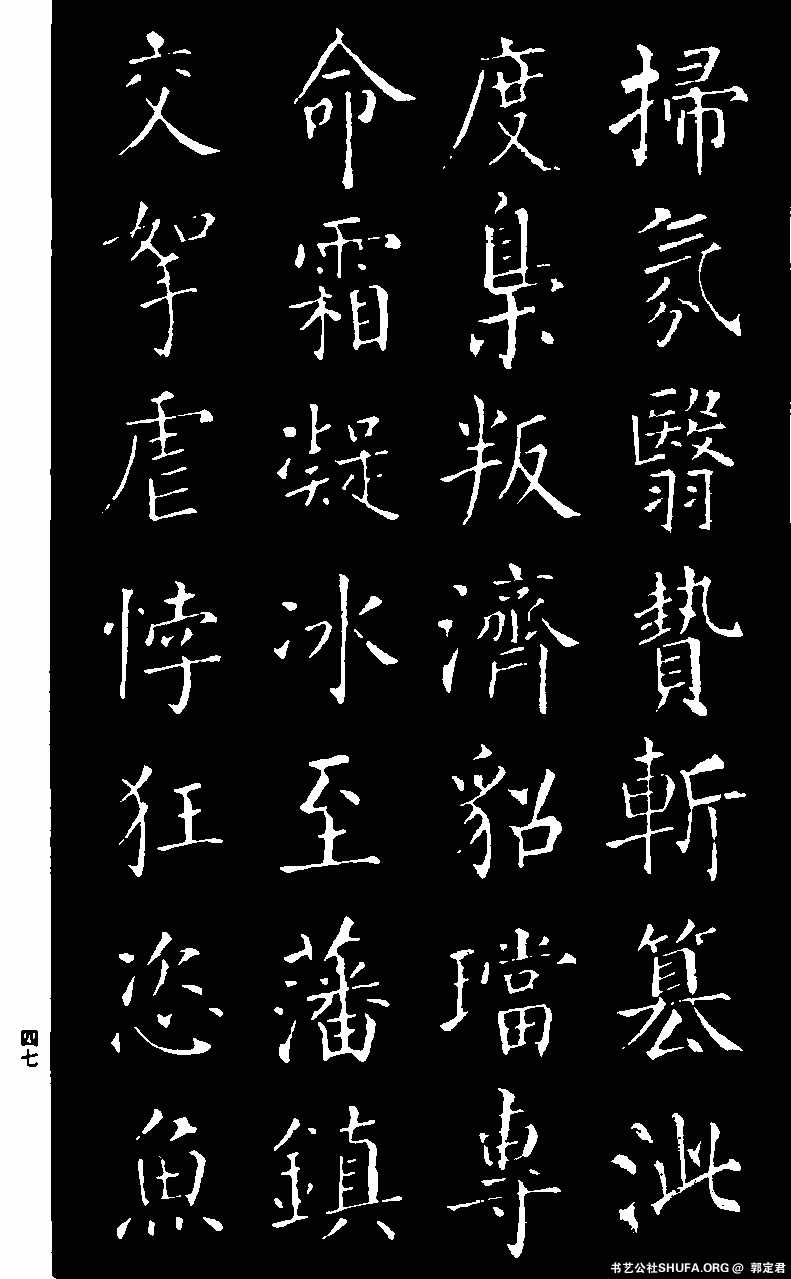 掃氛翳贄斬篡泚
度梟叛濟貂璫專
命霜凝冰至藩鎮
交拏虐悖狂恣魚
四七
书艺公社SHUFA.ORG @ 郭定君